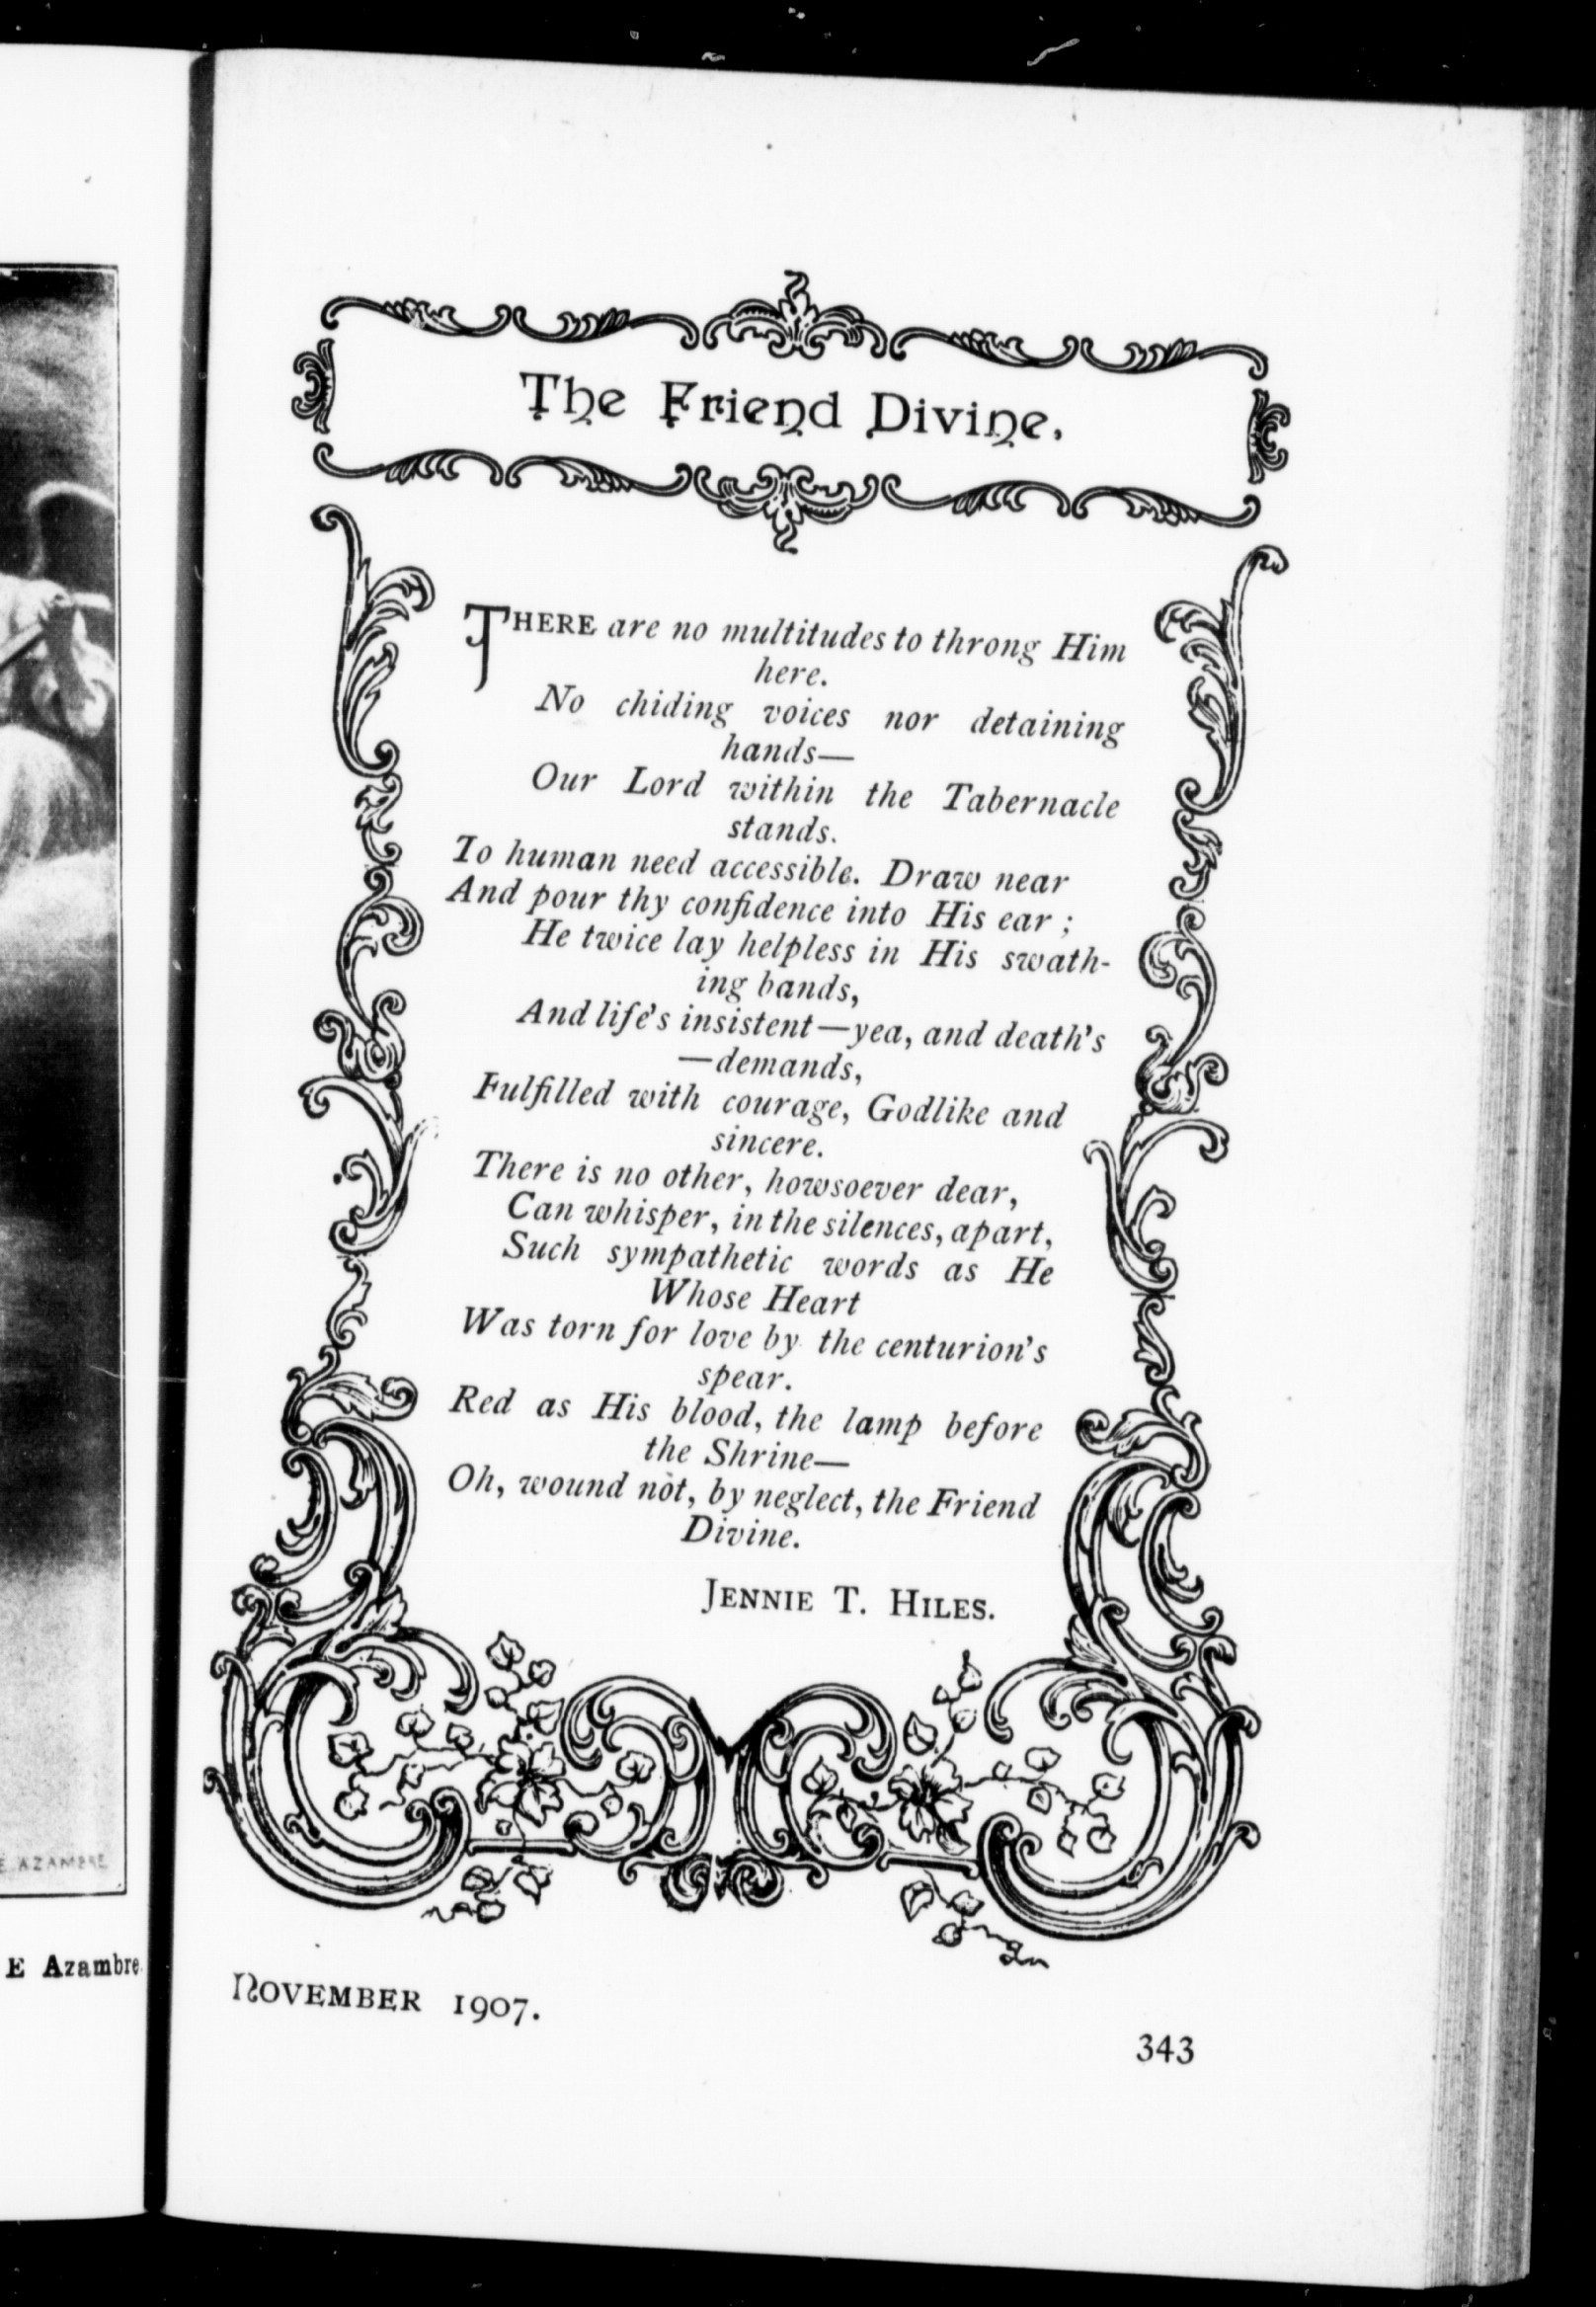 E. AZAMBRE
E Azambre.
The Friend Divine.
THERE are no multitudes to throng Him
here.
No chiding voices nor detaining
hands—
Our Lord within the Tabernacle
stands.
To human need accessible. Draw near
And pour thy confidence into His ear ;
He twice lay helpless in His swath-
ing bands,
And life's insistent—yea, and death's
—demands,
Fulfilled with courage, Godlike and
sincere.
There is no other, howsoever dear,
Can whisper, in the silences, apart,
Such sympathetic words as He
Whose Heart
Was torn for love by the centurion's
spear.
Red as His blood, the lamp before
the Shrine—
Oh, wound not, by neglect, the Friend
Divine.
JENNIE T. HILES.
NOVEMBER 1907.
343